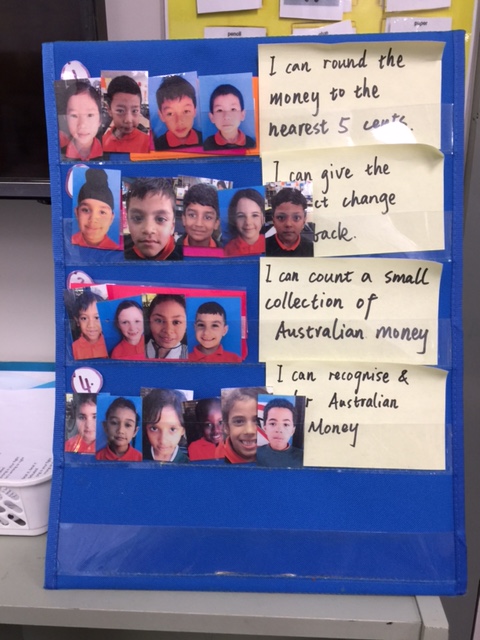 I can round the
money to the
nearest 5 cents.
I can give the
ct change
back.
I can count a small
collection of
Australian money
4.
I can recognise &
Australian
Money